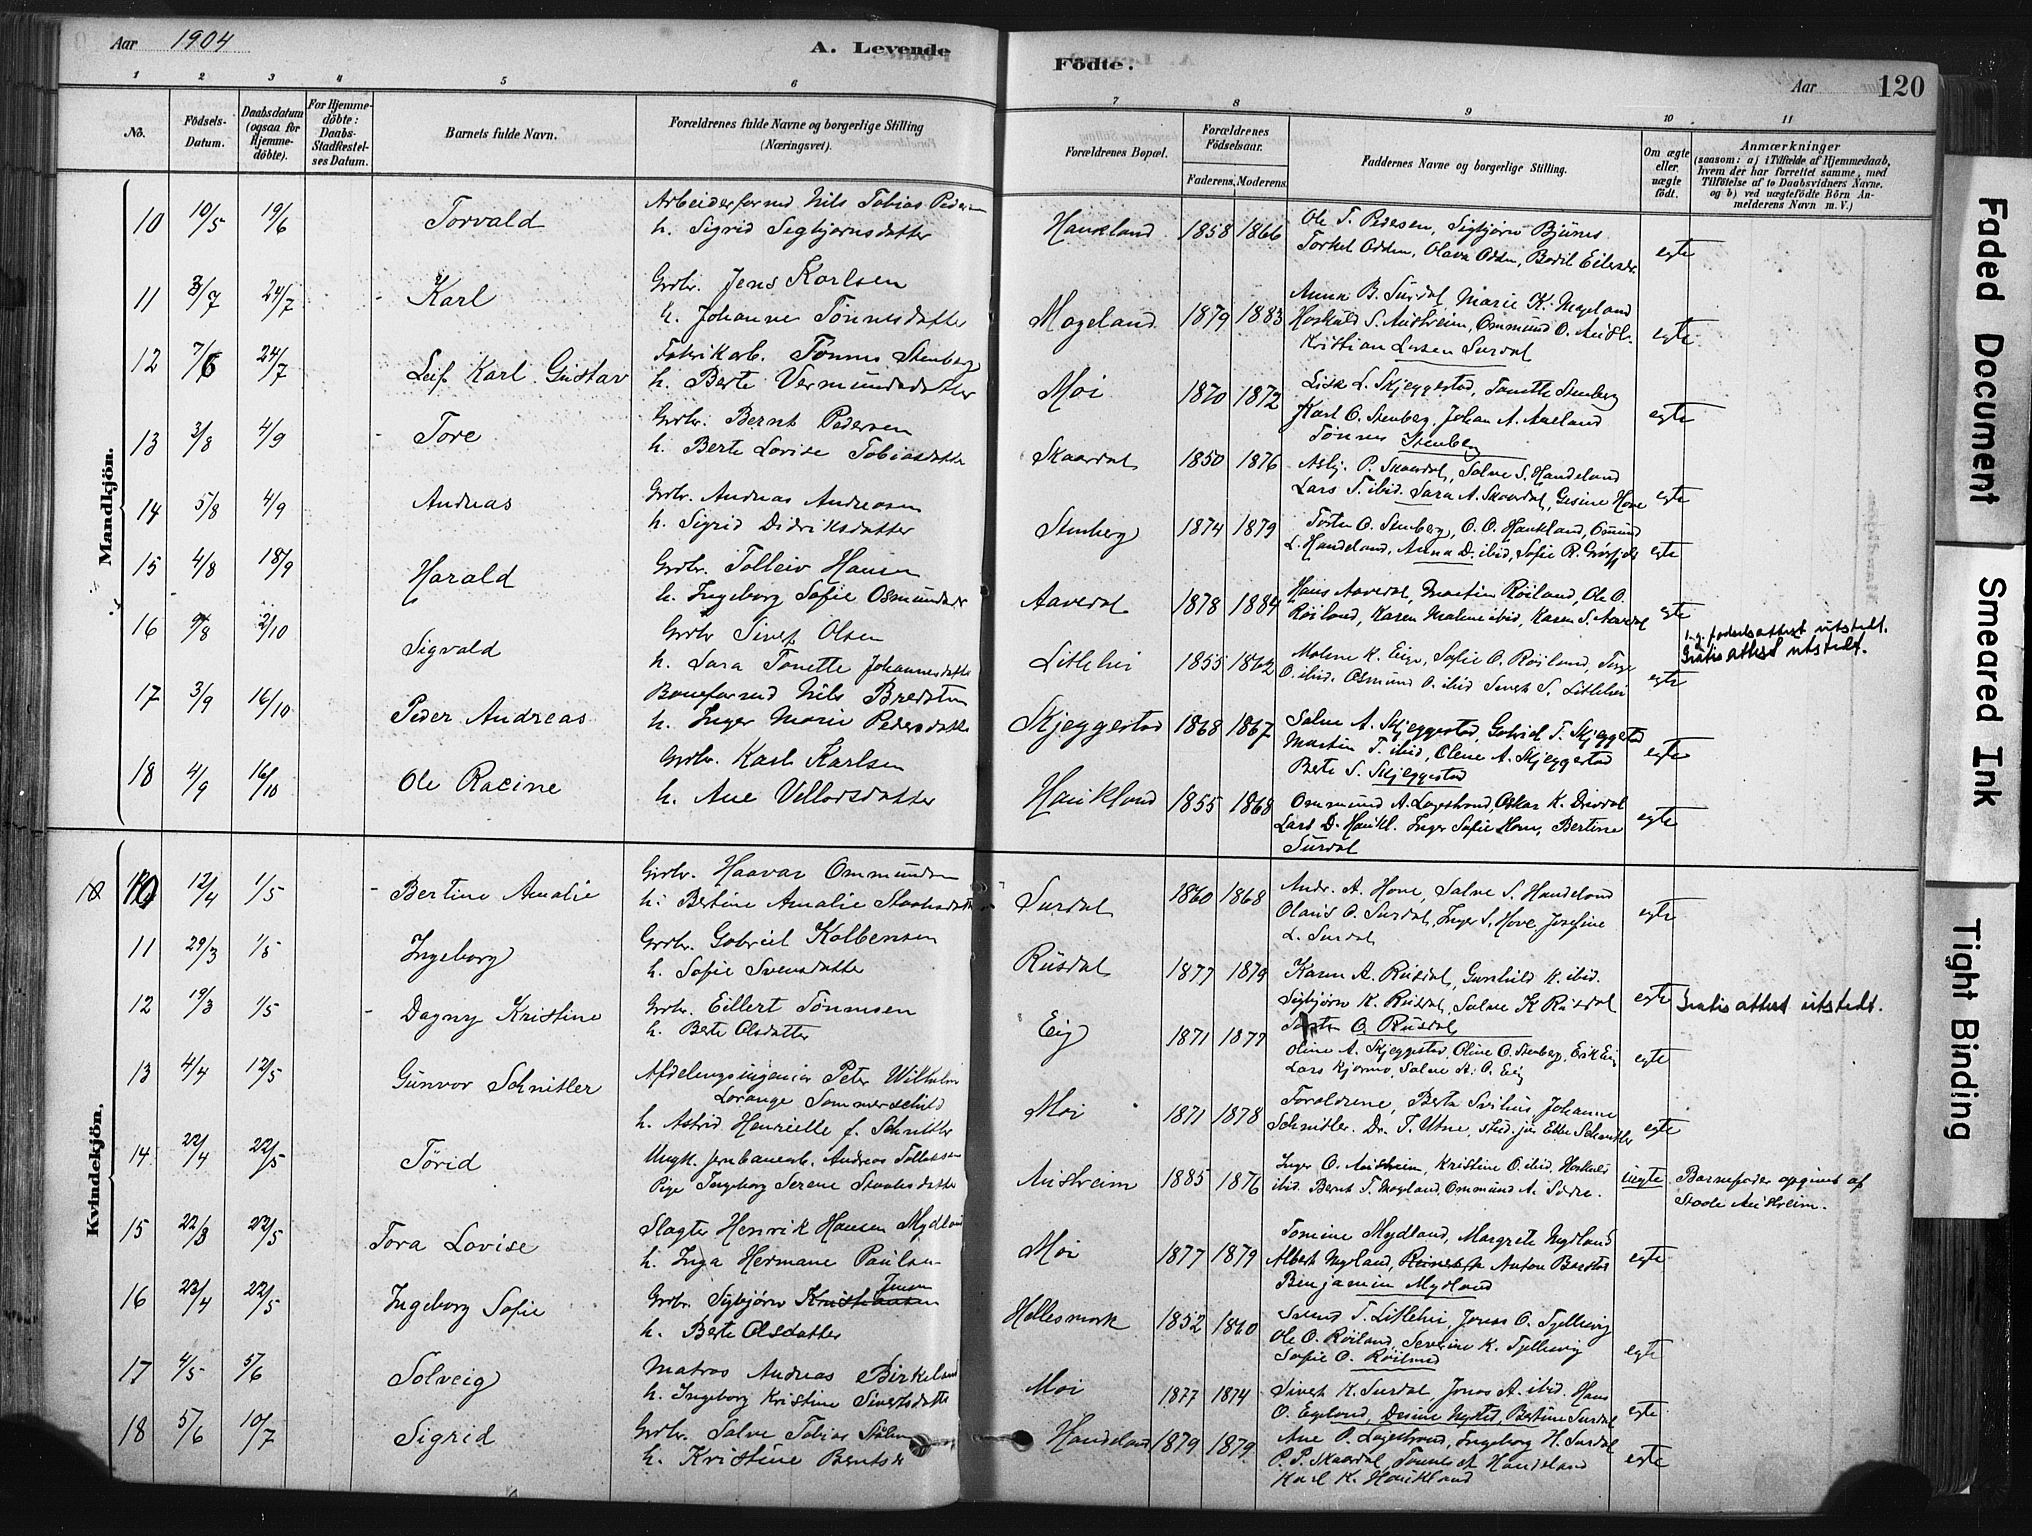 Aar 1904
A. Levende
Födte.
Aar
120
1 2 3 4 5 6 7 8 9 10 11
No.
Födsels-Datum.
Daabsdatum (ogsaa for Hjemme-döbte).
For Hjemme-döbte: Daabs-Stadfæstel-ses Datum.
Barnets fulde Navn.
Forældrenes fulde Navne og borgerlige Stilling (Næringsvei).
Forældrenes Bopæl.
Forældrenes Födselsaar.
Faderens. Moderens.
Faddernes Navne og borgerlige Stilling.
Om ægte eller uægte födt.
Anmærkninger
(saasom: a) i Tilfælde af Hjemmedaab,
hvem der har forrettet samme, med
Tilföielse af to Daabsvidners Navne.
og b) ved uægtefödte Börn An-
melderens Navn m. V.)
Mandkjön.
10 10/5 19/6 Torvald
Arbeiderformd Nils Tobias Pedersen
h. Sigrid Sigbjørnsdatter
Haukland 1858 1866
Ole T. Pedersen, Sigbjørn Bjūnes
Torkel Odden, Olava Odden, Bodil Eilersdr.
egte
11 3/7 24/7 Karl
Grdbr. Jens Karlsen
h. Johanne Tönnesdatter
Mogeland 1879 1883
Anna B. Surdal, Marie K. Mogeland
Hoskuld S. Austreim, Ommund O. Austr.
Kristian Larsen Surdal
egte
12 7/6 24/7 Leif Karl Gustav
Fabrikarb. Tönnes Stenberg
h. Berte Vermundsdatter
Moi 1870 1872
Lisk L. Skjeggestad, Tonette Stenberg
Karl O. Stenberg, Johan A. Aaeland
Tönnes Stenberg
egte
13 3/8 4/9 Tore
Grdbr. Bernt Pedersen
h. Berte Lovise Tobiasdatter
Skaardal 1850 1876
Asbj. P. Skaardal, Salve S. Handeland
Lars T. ibid. Sara A. Skaardal, Gesine Hove
egte
14 5/8 4/9 Andreas
Grdbr. Andreas Andreasen
h. Sigrid Didriksdatter
Stenberg 1874 1879
Torten O. Stenberg, O. O. Haukland, Omund
L. Handeland, Anna D. ibid, Sofie R.
egte
15 4/8 18/9 Harald
Grdbr. Tolleiv Hansen
h. Ingeborg Sofie Osmundsdr
Aavedal 1878 1884
Hans Aavedal, Martin Röiland, Ole O.
Röiland, Karen Malene ibid, Karen S. Aavedal
egte
16 9/8 2/10 Sigvald
Grdbr Sivert Olsen
h. Sara Tonette Johannesdatter
Litlehei 1855 1862
Malene K. Eige, Sofie O. Röiland, Terje
O. ibid. Osmund O. ibid Sivert S. Litlehei
egte
1. g. fødselsattest utstedt.
Gratis attest utstedt.
17 3/9 16/10 Peder Andreas
Baneformd Nils Bredsten
h. Inger Marie Pedersdatter
Skjeggestad 1868 1867
Salve A. Skjeggestad, Gabriel T. Skjeggestad
Martin T. ibid, Olene A. Skjeggestad
Berte S. Skjeggestad
egte
18 4/9 16/10 Ole Racine
Grdbr. Karl Karlsen
h. Ane Vellovsdatter
Haukland 1855 1868
Ommund A. Lagestrand, Oskar K. Drivdal
Lars D. Haukl. Inger Sofie Hove, Bertine
Surdal
egte
Kvindekjön.
10 10 12/4 1/5 Bertine Amalie
Grdbr. Haavar Ommundsen
h. Bertine Amalie Staalesdatter
Surdal 1860 1868
Andr. A. Hove, Salve S. Handeland
Olaus O. Surdal, Inger S. Hove, Josefine
L. Surdal
egte
11 29/3 1/5 Ingeborg
Grdbr. Gabriel Kolbensen
h. Sofie Svensdatter
Rūsdal 1877 1879
Karen A. Rūsdal, Gunhild K. ibid.
Sigbjørn K. Rūsdal, Salve K Rūsdal
O. Rūsdal
egte
Gratis attest utstedt.
12 19/3 1/5 Dagny Kristine
Grdbr. Eillert Tönnesen
h. Berte Olsdatter
Eig 1871 1879
Oline A. Skjeggestad, Oline O. Stenberg, Erik Eig
Lars Kjørmo, Salve A. O. Eig
egte
13 4/4 12/5 Gūnvor Schnitler
Afdelingsingeniør Peter Wilhelm
Lorange Sommerschild
h. Astrid Henriette f. Schnitler
Moi 1871 1878
Forældrene, Berta Svilius, Johanne
Schnitler. Dr. T. Utne, stud. jur Ebbe Schnitler
egte
14 22/4 22/5 Tørid
Ungk. Jernbanearb. Andreas Tollaksen
Pige Ingeborg Serene Staalesdatter
Austreim 1885 1876
Inger O. Austreim, Kristine O. ibid, Hoskuld
ibid. Bernt T. Mogland, Ommund A. Sædre.
uegte
Barnefader opgivet af
Staale Austreim.
15 22/3 22/5 Tora Lovise
Slagter Henrik Hansen Mydland
h. Inga Hermane Paulsen
Moi 1877 1879
Tomine Mydland, Margrete Mydland
Albert Mydland, Anton Berstad
Benjamin Mydland
egte
16 23/4 22/5 Ingeborg Sofie
Grdbr. Sigbjørn Kristiansen
h. Berte Olsdatter
Hellesmork 1852 1860
Svend T. Litlehei, Jonas O. Tjellesvig
Ole O. Röiland, Severine K. Tjellesvig
Sofie O. Röiland
egte
17 4/5 5/6 Solveig
Matros Andreas Birkeland
h. Ingeborg Kristine Sivertsdatter
Moi 1877 1874
Sivert K. Surdal, Jonas A. ibid. Hans
O. Egeland, Bertine Surdal
egte
18 5/6 10/7 Sigrid
Grdbr. Salve Tobias
h. Kristine Bentsdr
Handeland 1879 1879
Ane P. Lagestrand, Ingeborg H. Surdal
P. P. Skaardal, Tönnes Handeland
Karl K. Haukland
egte
Faded Document
Smeared Ink
Tight Binding